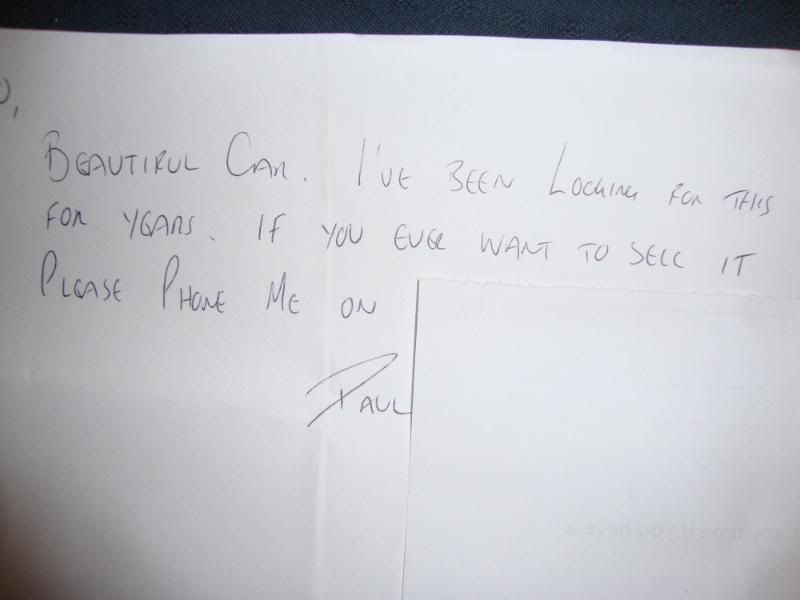 BEAUTIFUL CAR. I'VE BEEN LOOKING FOR THIS
FOR YEARS. IF YOU EVER WANT TO SELL IT
PLEASE PHONE ME ON
PAUL
any time if you have a